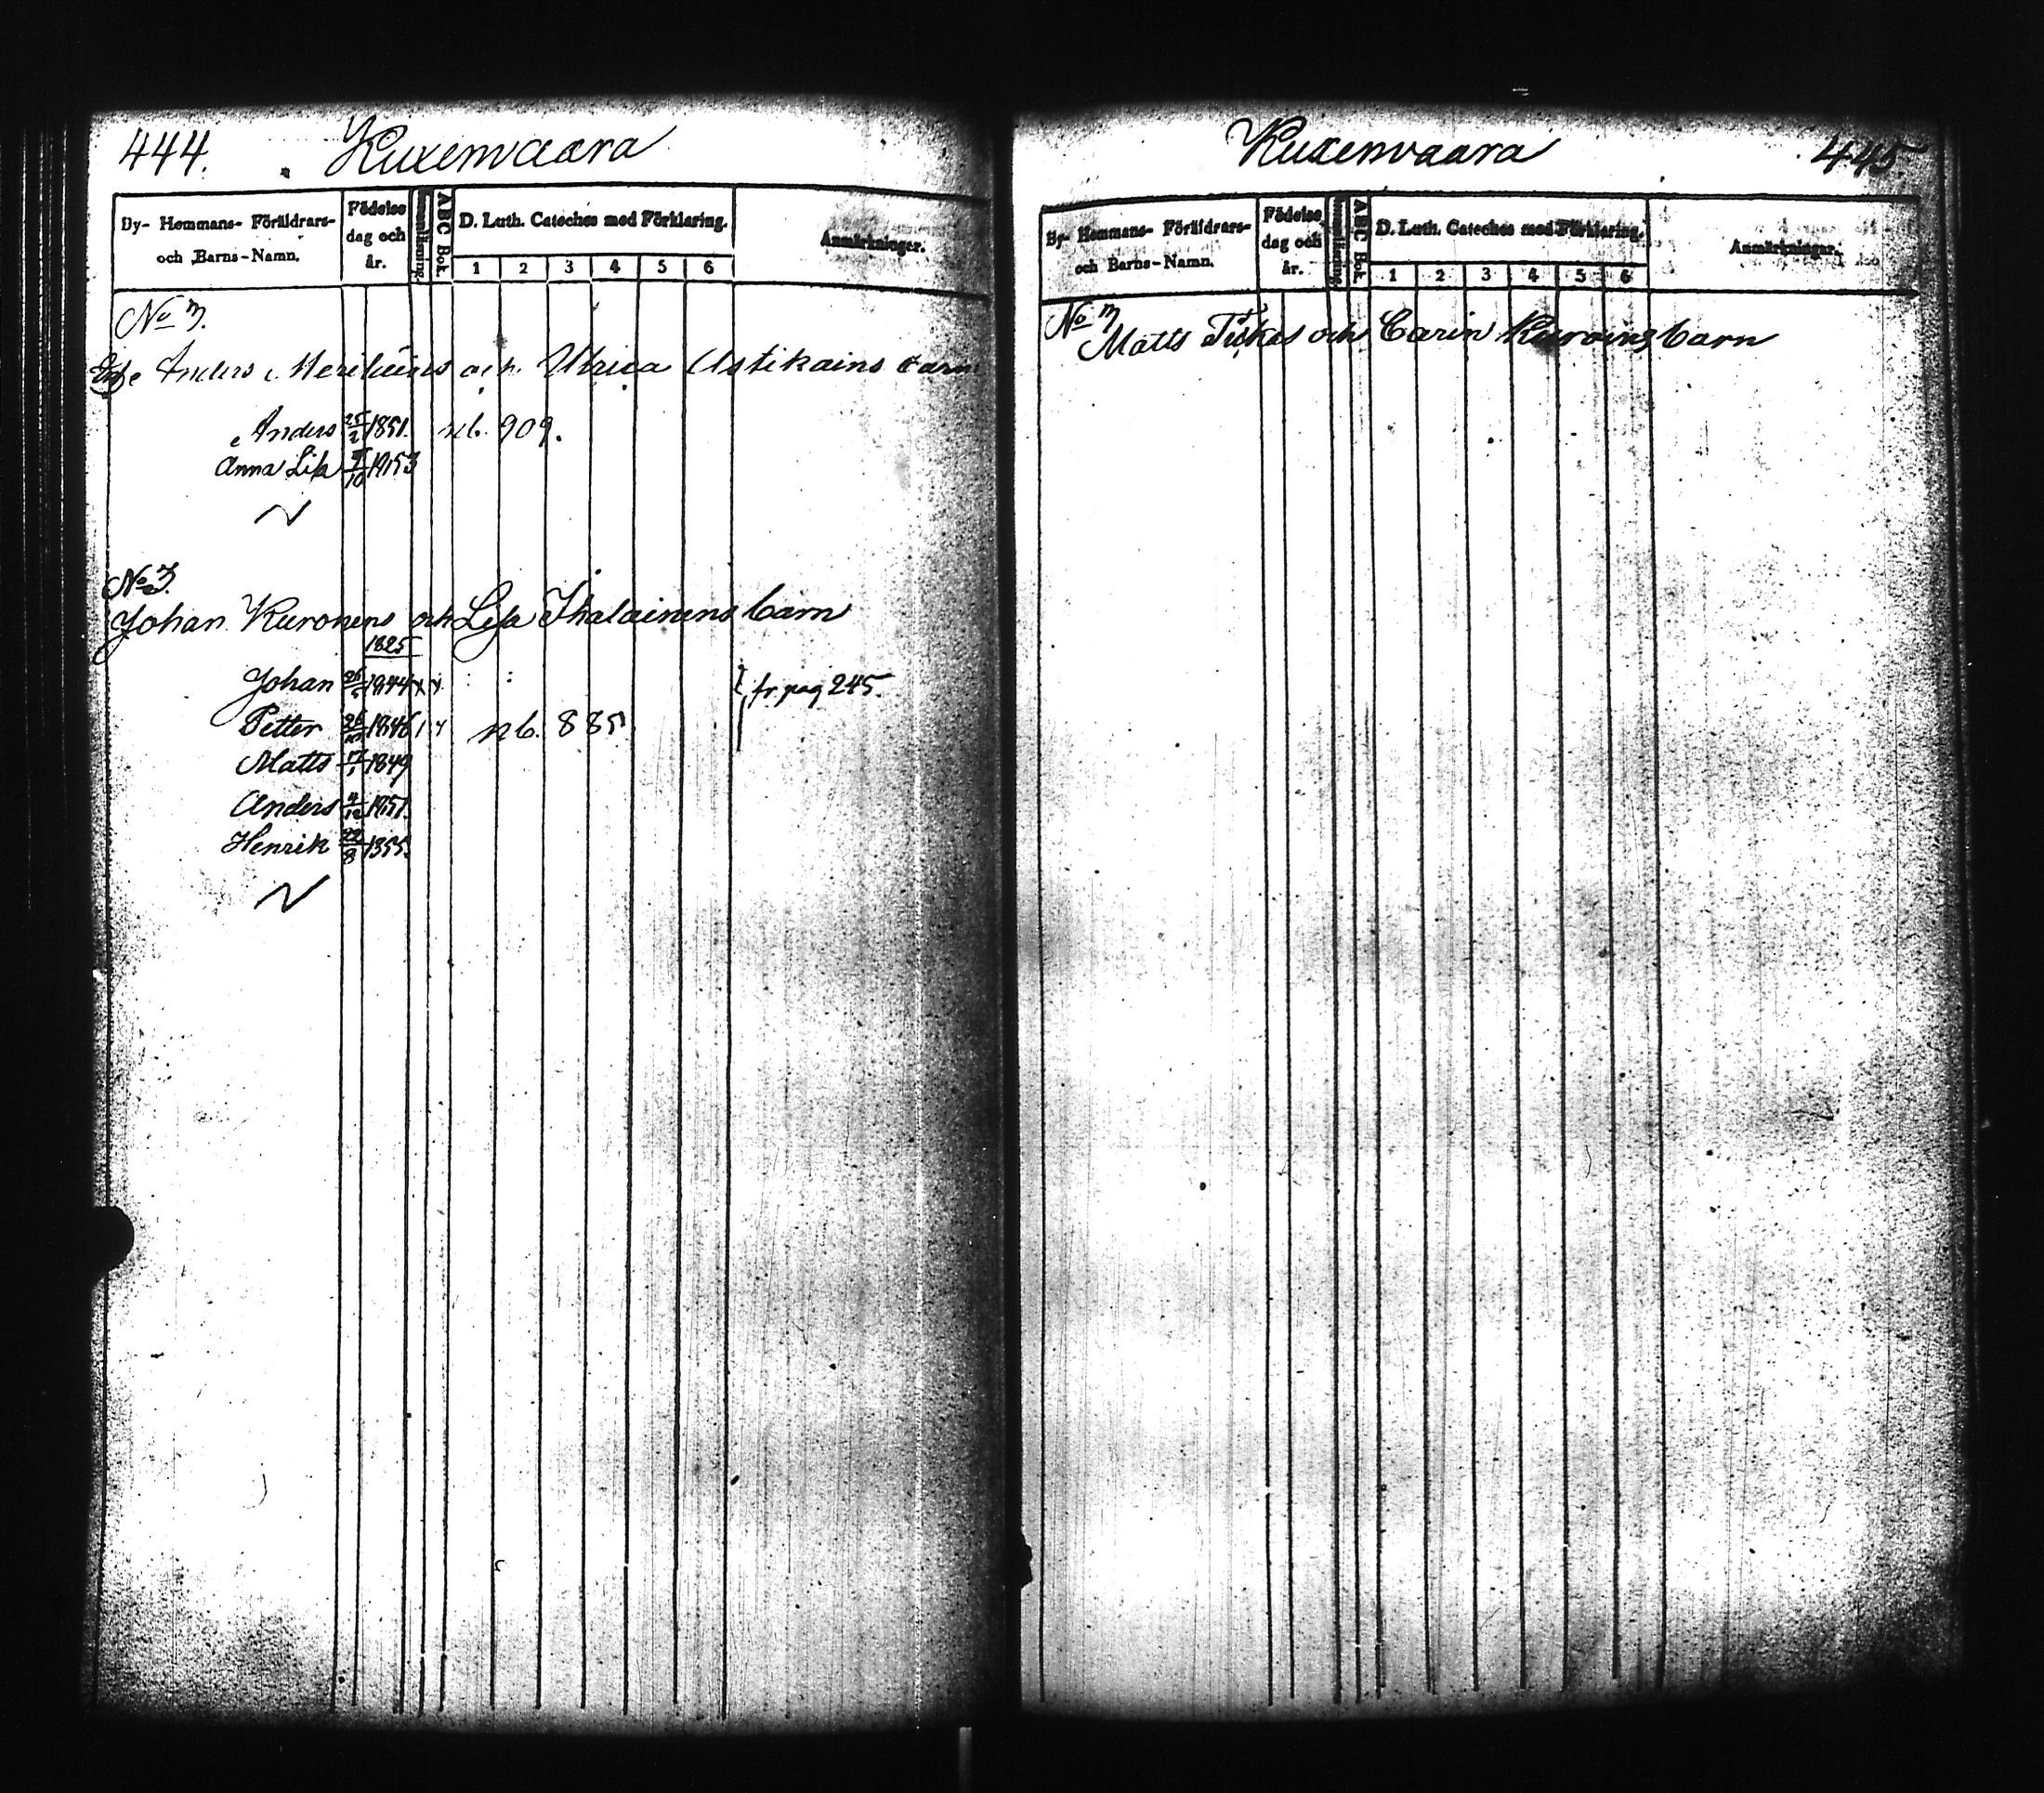 444. Kuxenvaara
By- Hemmans- Föräldrars- och Barns-Namn. Födelse dag och år. ABC Bok. D. Luth. Cateches med Förklaring. Anmärkningar.
1 2 3 4 5 6
No 3.
Anders Meriläins och Ulrica Astikains barn
Anders 25/2 1851. nb. 909.
Anna Lisa 10 1853
No 3.
Johan Kuronens och Lisa Ihalainens barn
1825
Johan 26 1844 x x fr. pag 245.
Petter 26 1846 nb. 885
Matts 17/1 1849
Anders 4/12 1851.
Henrik 22/8 1855.
Kuxenvaara 445.
By- Hemmans- Föräldrars- och Barns-Namn. Födelse dag och år. ABC Bok. D. Luth. Cateches med Förklaring. Anmärkningar.
1 2 3 4 5 6
No 3
Matts och Carin Kuroins barn